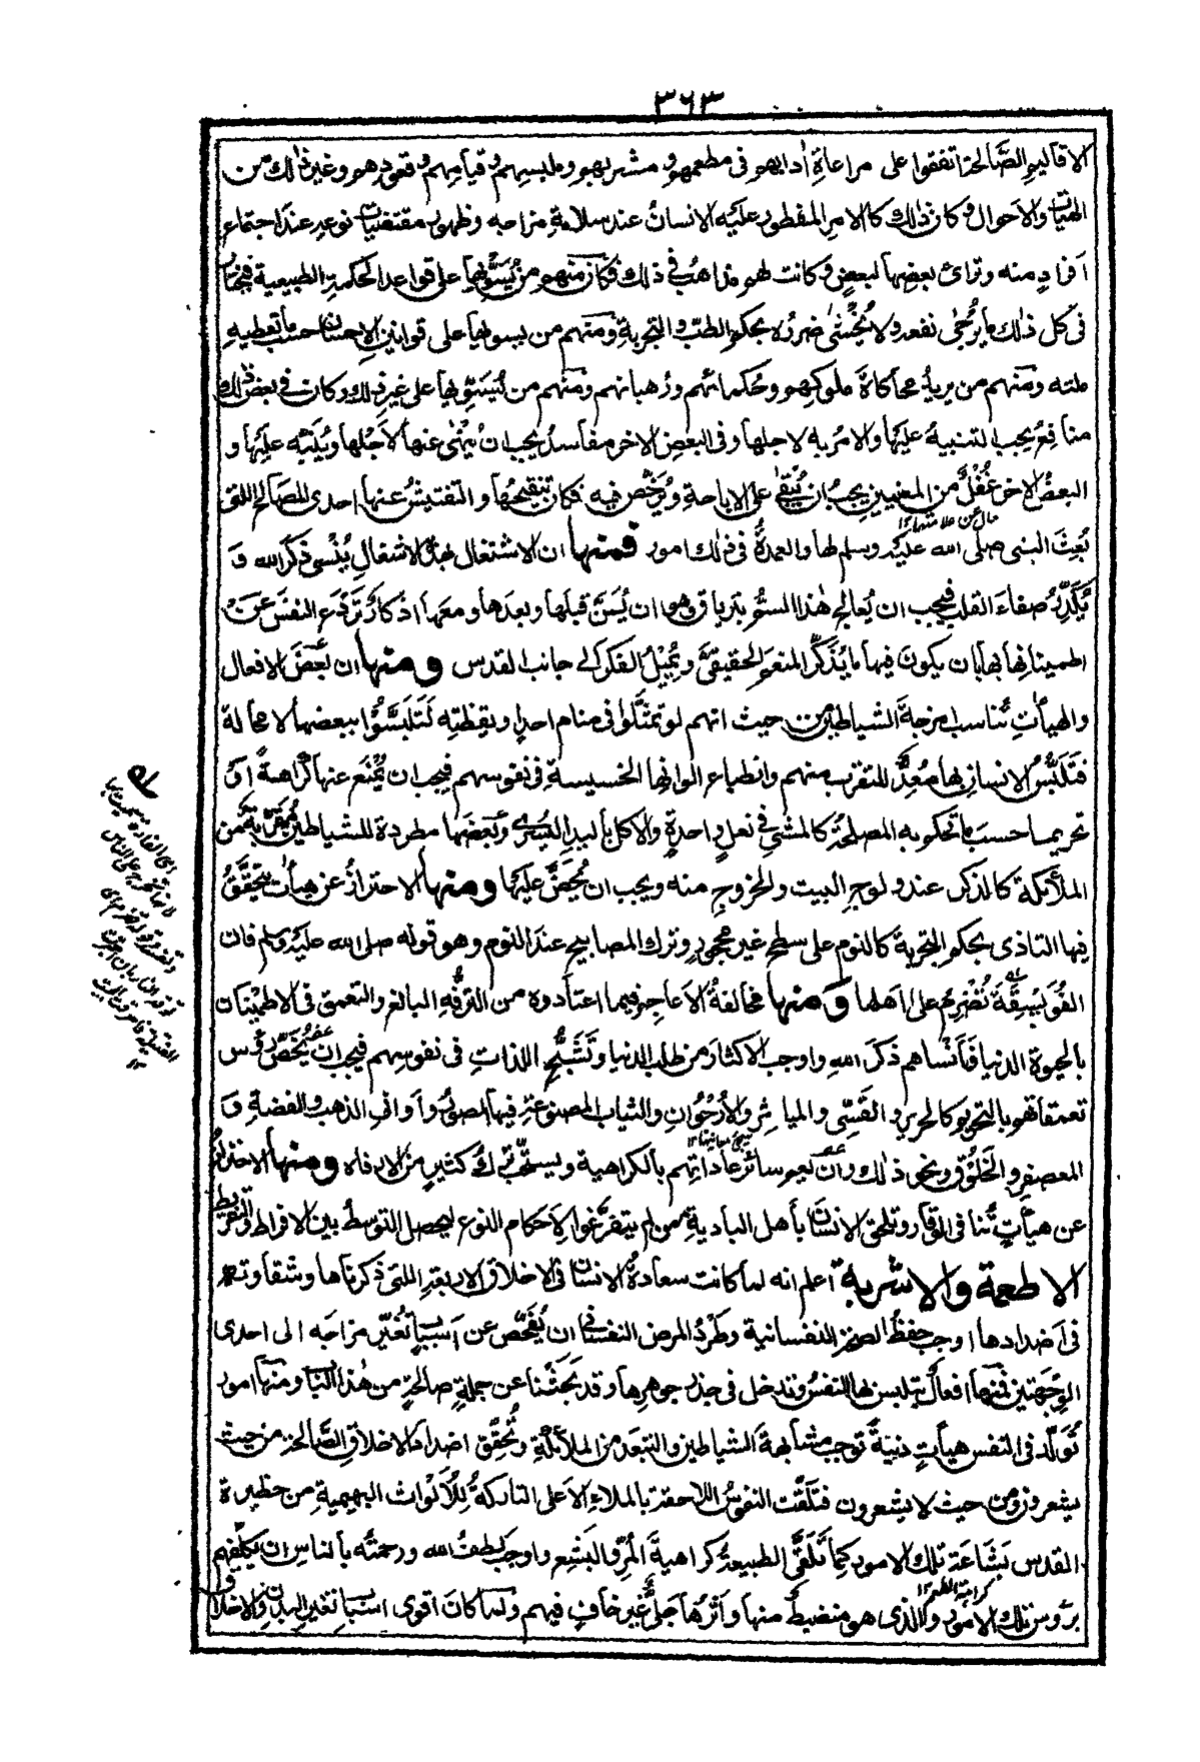 ٣٦٣
الاقاليم الصَّالحة اتفقوا على مراعاة اٰدابهم فى مطعمهم و مشربهم و ملبسهم و قيامهم و قعودهم و غير ذٰلك من
الهيات والاحوال و كان ذٰلك كالامر المفطور عليه الانسانُ عند سلامة مزاجه و ظهور مقتضيات نوعه عند اجتماع
افرادٍ منه و ترائى بعضها لبعضٍ و كانت لهم مذاهبُ فى ذلك فكان منهم من يُسَوِّيها على قواعد الحكمة الطبيعية فيختار
فى كل ذلك ما يُرجٰى نفعه و لا يُخشٰى ضرره بحكم الطب و التجربة و منهم من يسويها على قوانين الاحسان حسب ما تعطيه
ملته و منهم من يريد محاكاة ملوكهم و حُكمائهم و رُهبانهم و منهم من يُسَوِّيها على غير ذلك و كان فى بعض ذٰلك
منافعُ يجب التنبيه عليها و الامر به لاجلها و فى البعض الاخر مفاسدُ يجب انُ يُنْهٰى عنها لاَجْلها و يُنَبَّه عليها و
البعضُ الاخر غُفْلٌ من المعنيين يجبُ ان يُبْقٰى على الاباحة و يُرَخَّص فيه فكان تنقيحُها و التفتيشُ عنها احدى المصالح التى
بُعِثَ النبى صلى الله عليه وسلم لها و العمدةُ فى ذلك امور فمنها ان الاشتغال بهذه الاشغال يُنْسى ذكر الله و
يُكَدِّرُ صفاءَ القلب فيجب ان يُعالج هٰذا السمُّ بترياق و هو ان يُسَنَّ قبلها و بعدها و معها اذكارٌ تَرْدَع النفسَ عن
اطمينانها بها بان يكون فيها ما يُذَكِّر المنعم الحقيقىَّ و يُمِيْلُ الفكر الى جانب القدس و منها ان بعض الافعال
و الهياٰتِ تُناسب امزجةَ الشياطين من حيث انهم لو تمثَّلوا فى منام احدٍ او يقظتِه لَتَلَبَّسُوْا ببعضها لا محالة
فتَلَبُّسُ الانسان بها مُعِدٌّ للتقرب منهم و انطباع الوانها الخسيسة فى نفوسهم فيجب ان يُمْنَع عنها كراهيةً او
تحريما حسب ما تحكم به المصلحة كالمشىِ فى نعلٍ واحدةٍ و الاكل باليد اليُسرٰى و بَعضَها مطردة للشياطين مُقَرِّبة من
الملائكة كالذكر عند ولوج البيت و الخروج منه و يجب ان يُحَضَّ عليها و منها الاحترازُ عن هيأت يتحقَّقُ
فيها التاذى بحكم التجربة كالنوم على سطح غير محجور و ترك المصابيح عند النوم و هو قوله صلى الله عليه وسلم فان
الفُوَيْسِقَةَ تُضْرِمُ على اَهلها و منها مخالفةُ الاَعاجم فيما اعتادوه من الترفُّه البالغ و التعمق فى الاطمينان
بالحيوة الدنيا فَاَنْساهم ذكرَ اللهِ و اوجب الاكثار من طلب الدنيا و تَشَبُّح اللذاتِ فى نفوسهم فيجب ان يُخَصَّ رُؤس
تعمقاتهم بالتحريم كالحرير و القَسِّى و المياثر و الأُرْجُوَان و الثياب المصنوعة فيها الصور و اَوانى الذهب و الفضة و
المعصفر و الخَلُوْق و نحو ذلك و ان يعم سائر عاداتهم بالكراهية و يستحب ترك كثيرٍ من الارفاه و منها الاحترازُ
عن هيأتٍ تُنافى الوقار و تلحق الانسان بأهل البادية ممن لم يتفرَّغوا لاَحكام النوع ليحصل التوسطُ بين الافراط و التفريط
الاطعمة والاشربة اعلم انه لما كانت سعادةُ الانسان فى الاخلاق الاربعة التى ذكرناها و شقاوته
فى اَضدادها اوجب حفظُ الصحة النفسانية و طَرْدُ المرض النفسانى ان يُفَحَّص عن اسباب تُغَيِّر مزاجَه الى احدى
الوجهتين فمنها افعالٌ تتلبس بها النفسُ و تدخل فى جذر جوهرِها و قد بَحَثْنا عن جملةٍ صالحةٍ من هٰذا الباب و منها امور
تُولِّد فى النفس هيأتٍ دنيةً توجب مشابهة الشياطين و التبعّد من الملائكة و تُحقِّق اضداد الاخلاق الصَّالحة من حيث
يشعرون و من حيث لا يشعرون فتلقَّت النفوسُ اللاحقة بالملاءِ الاَعلى التاركةُ للاَلْواث البهيمية من حظيرة
القدس بَشَاعَةَ تلك الامور كما تَلَقَّى الطبيعةُ كراهيةَ المُرِّ و البَشِع و اوجب لطفُ الله و رحمتُه بالناس ان يُكلِّفهم
برؤس تلك الامور و الذى هو منضبطٌ منها و اَثَرُها جَلىٌّ غير خافٍ فيهم و لما كان اقوى اسباب تغير البدن و الاخلاق